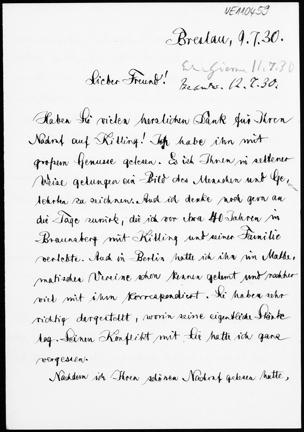 VEM0459
Breslau, 9.7.30.
11.7.30
Beantw. 12.7.30.
Lieber Freund!
Haben Sie vielen herzlichen Dank für Ihren
Nachruf auf Killing! Ich habe ihn mit
großem Genusse gelesen. Es ist Ihnen in seltener
Weise gelungen ein Bild des Menschen und Ge-
lehrten zu zeichnen. Auch ich denke noch gern an
die Tage zurück, die ich vor etwa 40 Jahren in
Braunsberg mit Killing und seiner Familie
verlebte. Auch in Berlin hatte ich ihn im Mathe-
matischen Vereine schon kennen gelernt und nachher
viel mit ihm korrespondiert. Sie haben sehr
richtig dargestellt, worin seine eigentliche Stärke
lag. Seinen Konflikt mit Lie hatte ich ganz
vergessen.
Nachdem ich Ihren schönen Nachruf gelesen hatte,